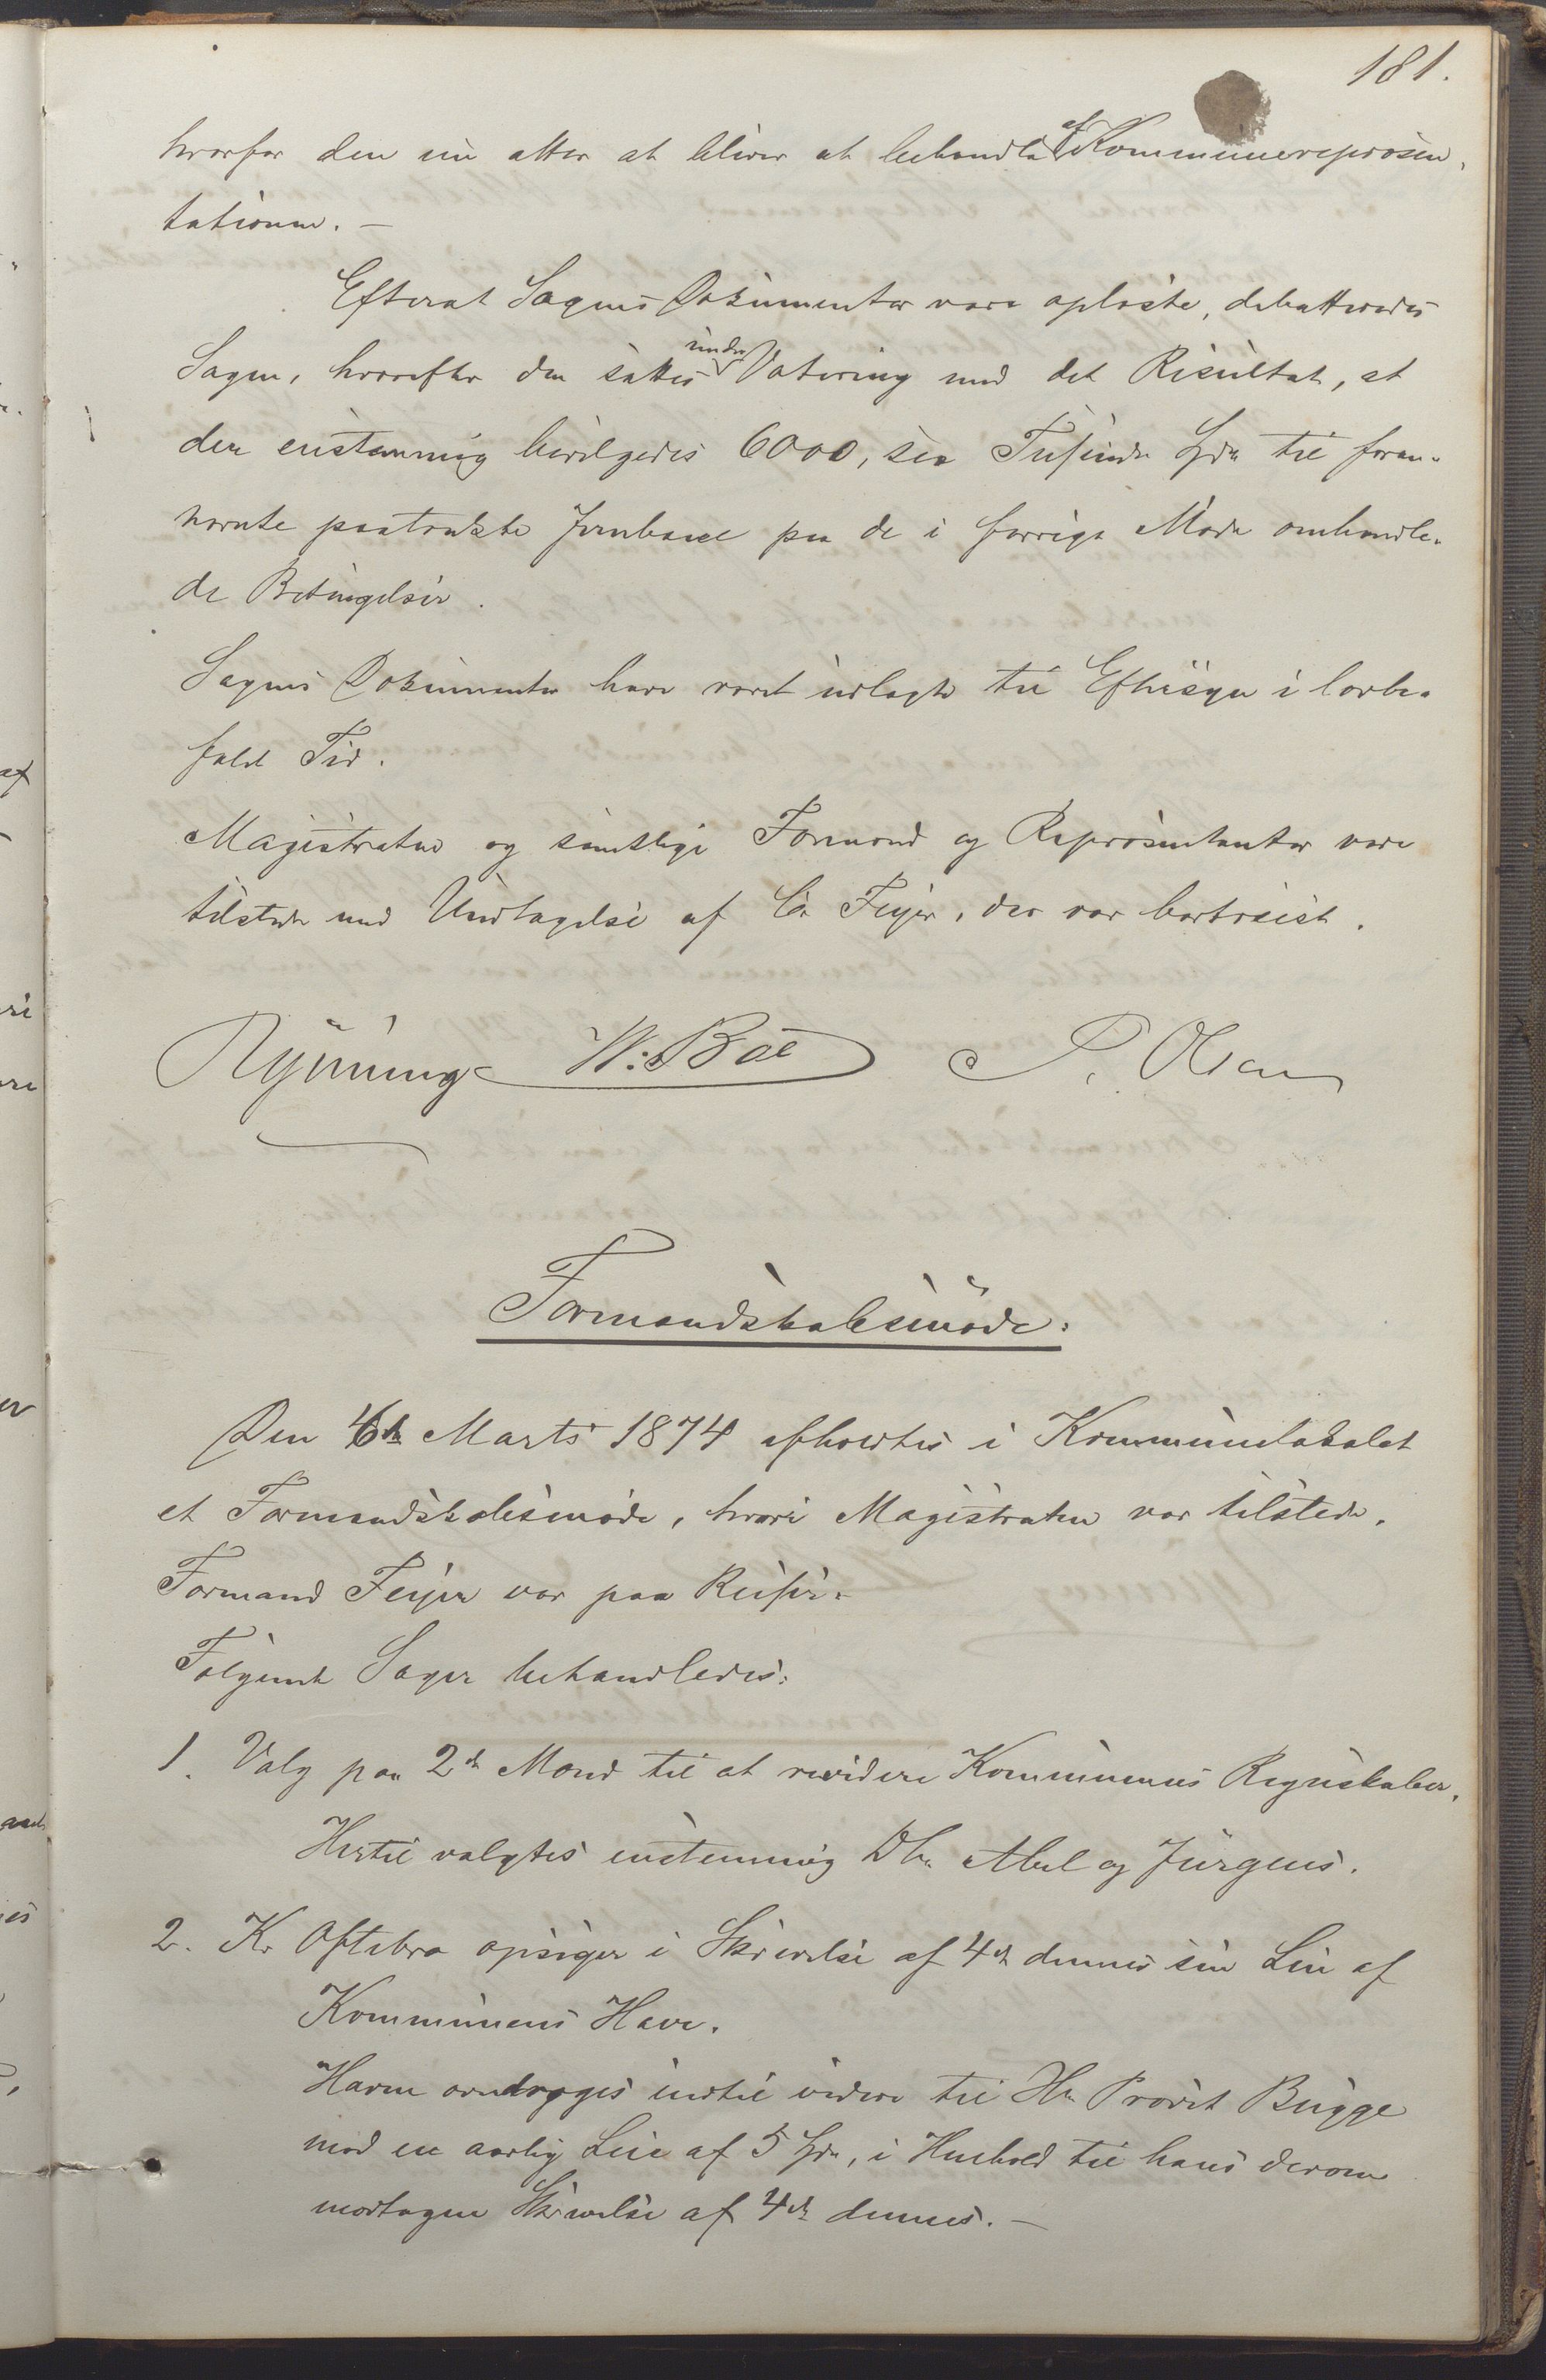 181.
hvorfor den nu atter at bliver at behandle af Kommunerepræsen,
tationen. –
Efterat Sagens Dokumenter vare oplæste, debatteredes
Sagen, hvorefter den sattes under Votering med det Resultat, at
der enstemmig bevilgedes 6000, sex Tusinde Spd til foran-
nævnte paatænkte Jernbane paa de i forrige Møde omhandle-
de Betingelser.
Sagens Dokumenter have været udlagte til Eftersyn i lovbe-
falet Tid.
Magistraten og samtlige Formænd og Repræsentanter vare
tilstede med Undtagelse af Co Feyer, der var bortreist.
Rynning W. Bøe P. Olsen
Formandskabsmøde:
Den 6te Marts 1874 afholdtes i Kommunelokalet
et Formandskabsmøde, hvori Magistraten var tilstede.
Formand Feyer var paa Reiser.
Følgende Sager behandledes:
1. Valg paa 2de Mænd til at revidere Kommunens Regnskaber.
Hertil valgtes enstemmig Dhr Abel og Jürgens.
2. K. Oftebro opsiger i Skrivelse af 4de dennes sin Leie af
Kommunens Have.
Haven overdrages indtil videre til Hr Provst Bugge
mod en aarlig Leie af 5 Spd, i Henhold til hans derom
modtagne Skrivelse af 4de dennes. –